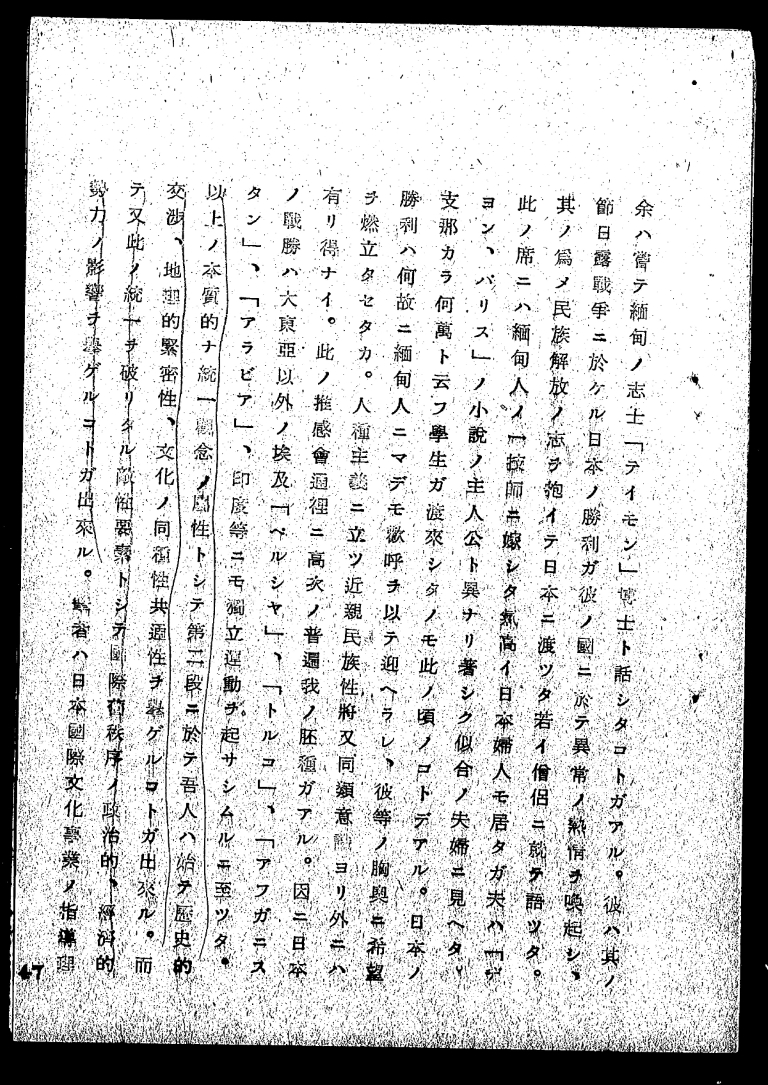 余ハ嘗テ緬甸ノ志士「テイモン」博士ト話シタコトガアル。彼ハ其ノ
節日露戰爭ニ於ケル日本ノ勝利ガ彼ノ國ニ於テ異常ノ熱情ヲ喚起シ、
其ノ爲メ民族解放ノ志ヲ抱イテ日本ニ渡ツタ若イ僧侶ニ就テ語ツタ。
此ノ席ニハ緬甸人ノ一技師ニ嫁シタ氣高イ日本婦人モ居タガ夫ハ「
ヨン、バリス」ノ小說ノ主人公ト異ナリ著シク似合ノ夫婦ニ見ヘタ。
支那カラ何萬ト云フ學生ガ渡來シタノモ此ノ頃ノコトデアル。日本ノ
勝利ハ何故ニ緬甸人ニマデモ歡呼ヲ以テ迎ヘラレ、彼等ノ胸奧ニ希望
ヲ燃立タセタカ。人種主義ニ立ツ近親民族性將又同類意識ヨリ外ニハ
有リ得ナイ。此ノ推感會通裡ニ高次ノ普遍我ノ胚種ガアル。因ニ日本
ノ戰勝ハ大東亞以外ノ埃及「ペルシヤ」、「トルコ」、「アフガニス
タン」、「アラビア」、印度等ニモ獨立運動ヲ起サシムルニ至ツタ。
以上ノ本質的ナ統一觀念ノ屬性トシテ第二段ニ於テ吾人ハ始テ歷史的
交涉、地理的緊密性、文化ノ同種性共通性ヲ擧ゲルコトガ出來ル。而
テ又此ノ統一ヲ破リタル敵性要素トシテ國際舊秩序ノ政治的、經濟的
勢力ノ影響ヲ擧ゲルコトガ出來ル。編者ハ日本國際文化事業ノ指導理
47